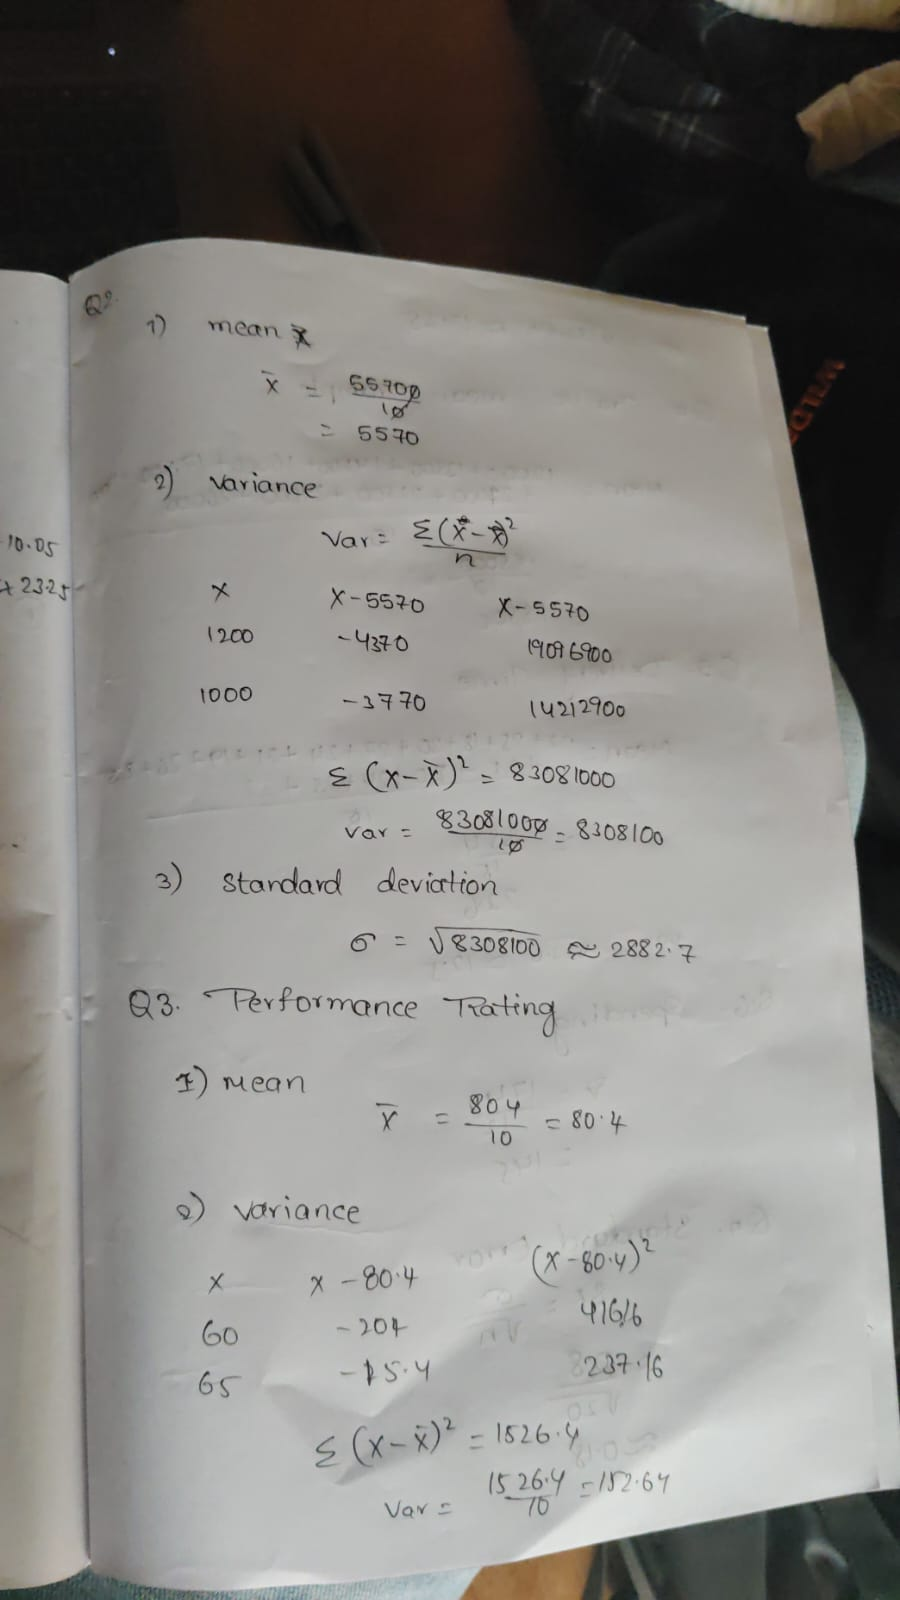 Q2.
1) mean x̄
x̄ = 55700/10
= 5570
2) variance
Var = Σ(x̄-x̄)²/n
x x-5570 x-5570
1200 -4370 19096900
1000 -3770 14212900
Σ (x-x̄)² = 83081000
var = 83081000/10 = 8308100
3) standard deviation
σ = √8308100 ≈ 2882.7
Q3. Performance Rating
1) mean
x̄ = 804/10 = 80.4
2) variance
x x-80.4 (x-80.4)²
60 -204 416.16
65 -15.4 237.16
Σ (x-x̄)² = 1526.4
Var = 1526.4/10 = 152.64
10.05
2325
WILD